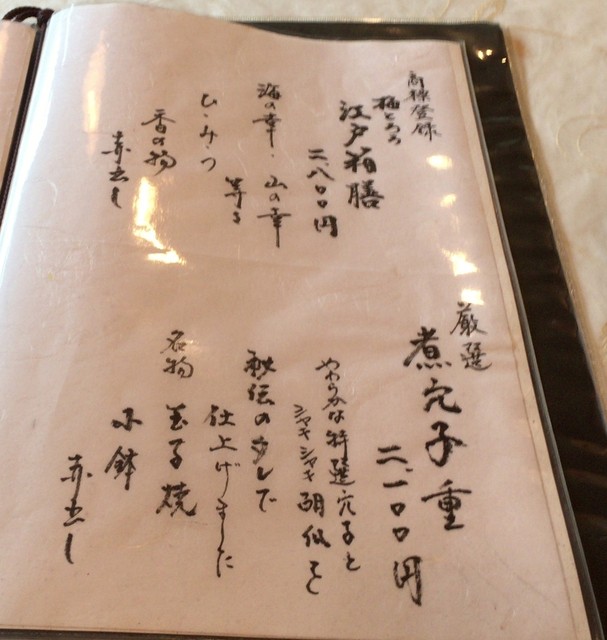 商標登録
とろろ
江戸箱膳
二、八〇〇円
海の幸・山の幸
等々
ひ・み・つ
香の物
赤出し
厳選
煮穴子重
二、一〇〇円
やわらかな特選穴子と
シャキシャキ胡瓜を
秘伝のタレで
仕上げました
名物 玉子焼
小鉢
赤出し